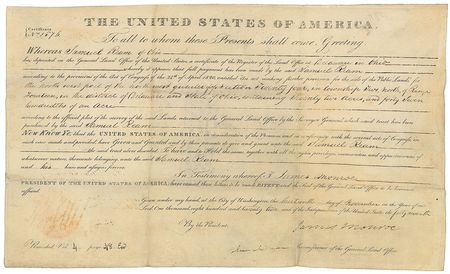 THE UNITED STATES OF AMERICA.
Certificate
To all to whom these Presents shall come, Greeting
Whereas Samuel Ream of Ohio
has deposited in the General Land Office of the United States, a certificate of the Register of the Land Office at Delaware in Ohio
whereby it appears that full payment has been made by the said Samuel Ream
according to the provisions of the Act of Congress of the 24th of April 1820 entitled An act making further provision for the sale of the Public Lands, for
the north west part of the north west quarter of Section Twenty four, in Township two north, of Range
in the district of Delaware and State of Ohio, containing Twenty two Acres, and forty
hundredths of an Acre
according to the official plat of the survey of the said Lands returned to the General Land Office by the Surveyor General which said tract has been
purchased by the said Samuel Ream
Now Know Ye, that the UNITED STATES OF AMERICA, in consideration of the Premises and in conformity with the several acts of Congress in
such case made and provided, have Given and Granted and by these presents do give and grant unto the said Samuel Ream
the said tract above described: To have and to Hold the same, together with all the rights, privileges, immunities and appurtenances of
whatsoever nature, thereunto belonging, unto the said Samuel Ream
and his heirs and assigns forever.
In Testimony whereof I James Monroe
PRESIDENT OF THE UNITED STATES OF AMERICA, have caused these Letters to be made PATENT and the Seal of the General Land Office to be hereunto
affixed.
Given under my hand at the City of Washington, the day of November in the Year of our
Lord One thousand eight hundred and and of the Independence of the United States the forty
By the President
James Monroe
Commissioner of the General Land Office
Recorded Vol. 4 page 48